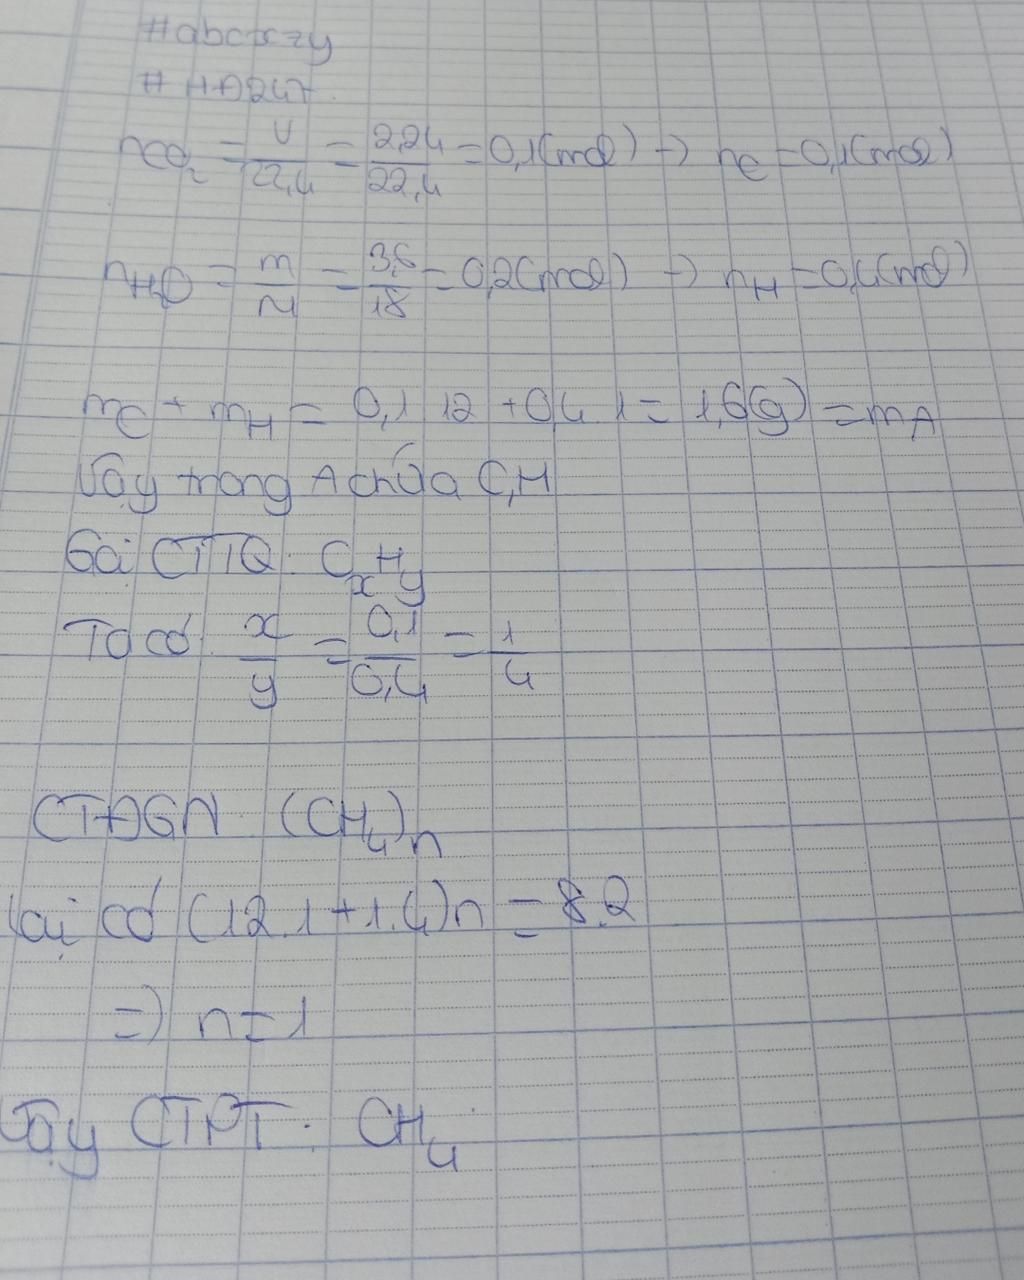 #abcxzy
# HĐ247
nCO₂ = V/22,4 = 2,24/22,4 = 0,1(mol) → nC = 0,1(mol)
nH₂O = m/M = 3,6/18 = 0,2(mol) → nH = 0,4(mol)
mC + mH = 0,1.12 + 0,4.1 = 1,6(g) = mA
Vậy trong A chứa C,H
Gọi CTTQ: CxHy
Ta có: x/y = 0,1/0,4 = 1/4
CTĐGN: (CH₄)n
lại có (12.1+1.4)n = 8.2
=> n = 1
Vậy CTPT: CH₄